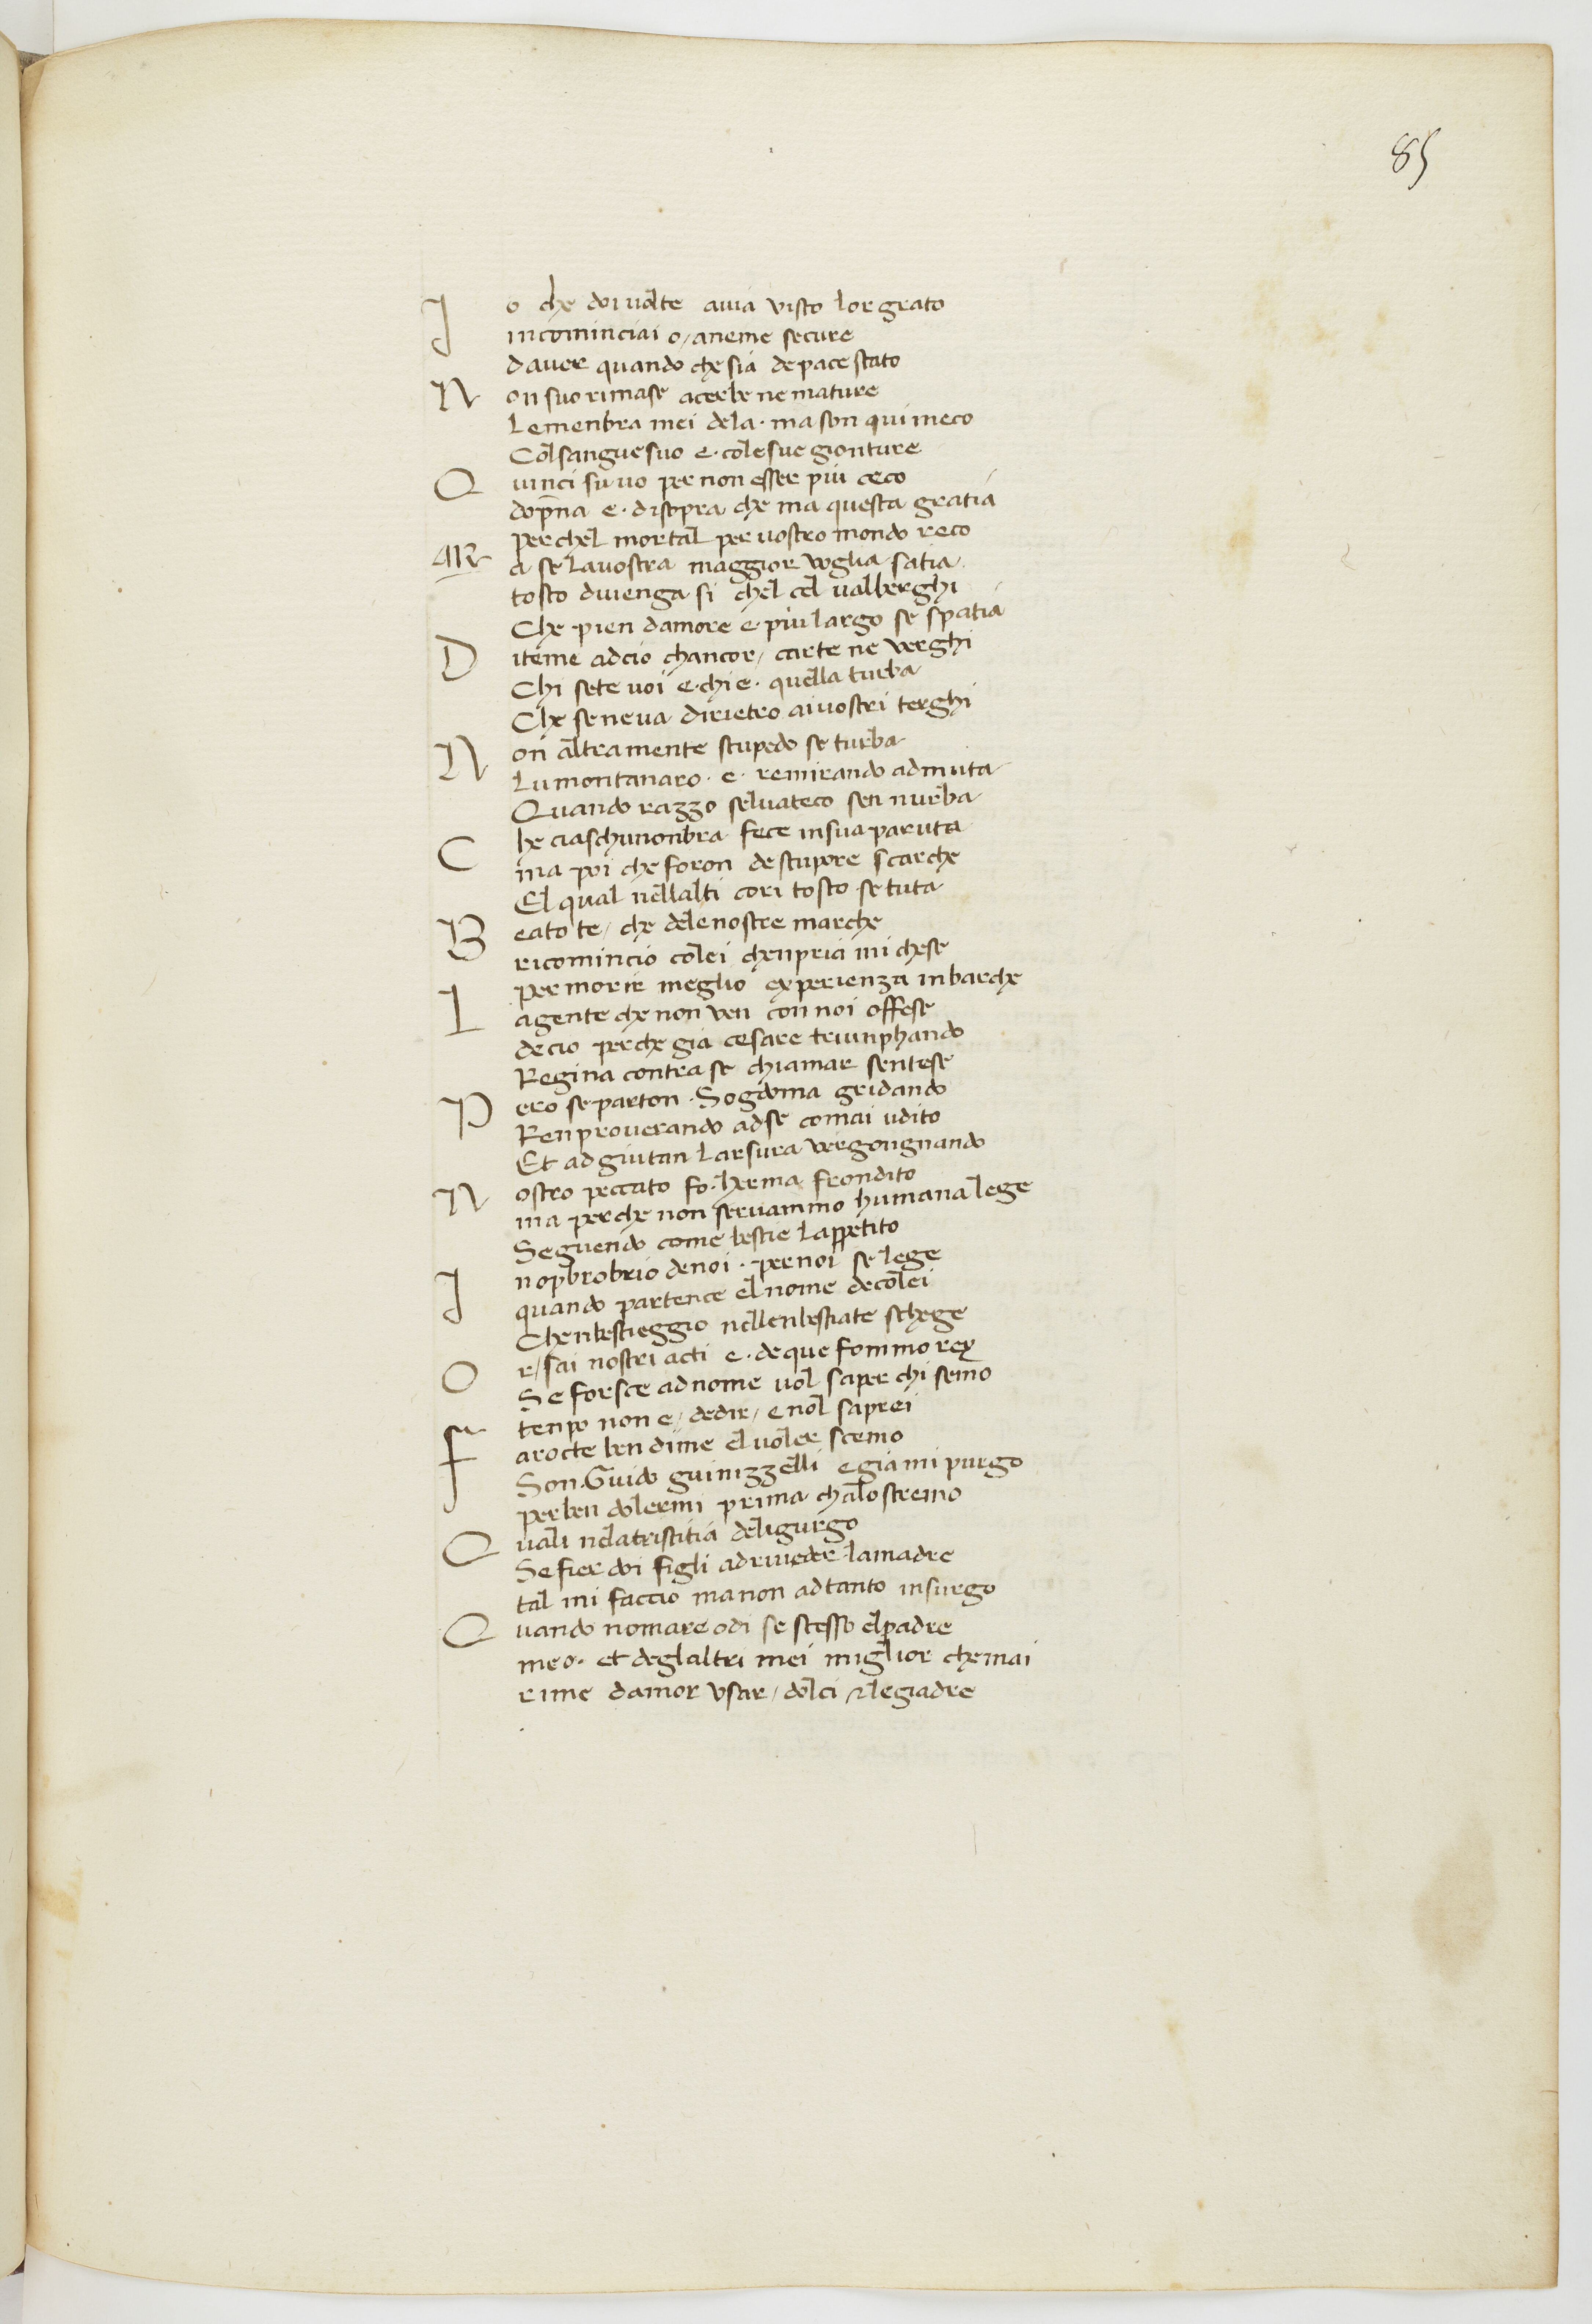 85
Io che doi uolte auia visto lor grato
incominciai o/ aneme secure
Dauer quando che sia de pace stato
Non suo rimase acerbe ne mature
Le menbra mei dela · ma son qui meco
Col sangue suo e · cole sue gionture
Quinci su uo per non esser piu ceco
dop̄na e · disopra che ma questa gratia
per chel mortal per uostro mondo reco
Ma se la uostra maggior voglia satia
tosto diuenga si chel cel ualberghi
Che pien damore e piu largo se spatia
Diteme ad cio chancor/ carte ne verghi
Chi sete uoi e · chi e · quella turba
Che se ne ua dirietro ai uostri terghi
Non altramente stupedo se turba
Lu montanaro · e · remirando admuta
Quando razzo seluateco sen nurba
Che ciaschunonbra fece in sua paruta
ma poi che foron de stupore scarche
El qual nellalti cori tosto se tuta
Beato te/ che dele nostre marche
ricomincio colei chenpria mi chese
per morir meglio experienza inbarche
La gente che non ven con noi offese
de cio perche gia cesare triunphando
Regina contra se chiamar sentese
Pero se parton · Sogdoma gridando
Renprouerando ad se comai udito
Et adgiutan larsura vergongnando
Nostro peccato fo · hermafrondito
ma perche non seruammo humana lege
Seguendo come bestie lappetito
In opbrobrio de noi · per noi se lege
quando partence el nome de colei
Che nbestieggio nellenbestiate schege
Or/ sai nostri acti e · de que fommo rei
Se forsce ad nome uol saper chi semo
tenpo non e/ dedir/ e nol saprei
Farocte ben dime el uoler scemo
Son · Guido guinizzelli e gia mi purgo
per ben dolermi prima chalostremo
Quali nela tristitia deligurgo
Se fier doi figli ad riueder la madre
tal mi faccio ma non ad tanto insurgo
Quando nomare odi se stesso el padre
meo · et deglaltri mei miglior che mai
rime damor usar/ dolci & legiadre